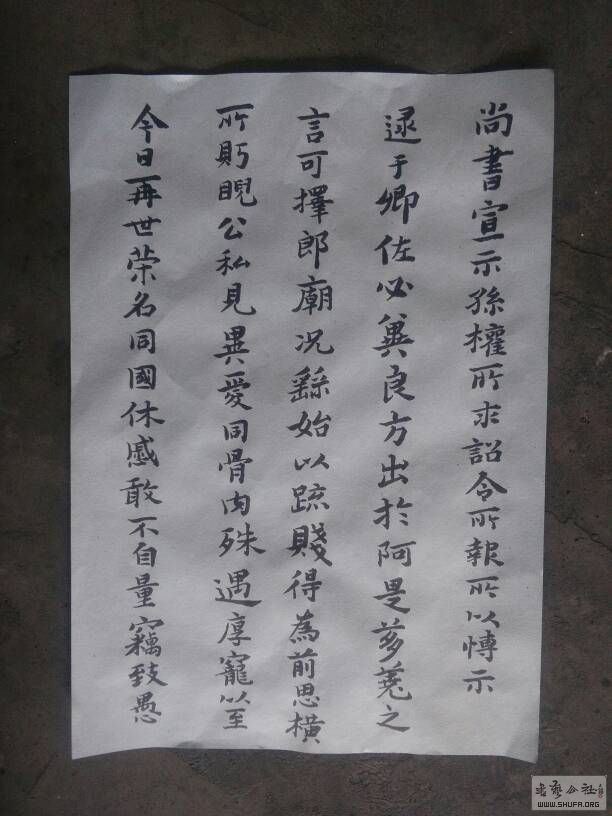 尚書宣示孫權所求詔令所報所以博示
逯于卿佐必冀良方出於阿是芻蕘之
言可擇郎廟況繇始以疏賤得為前思橫
所眄睨公私見異愛同骨肉殊遇厚寵以至
今日再世榮名同國休慼敢不自量竊致愚
書藝公社
WWW.SHUFA.ORG